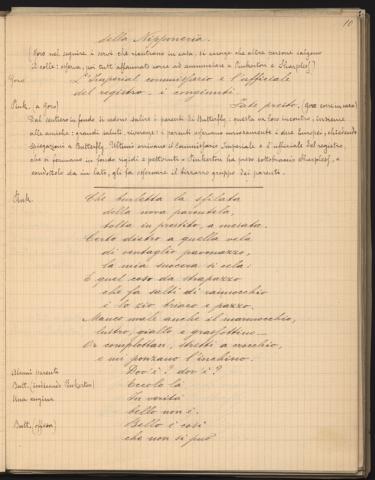 10
della Nipponeria.
(Goro nel seguire i servi che rientrano in casa, si accorge che altre persone salgono
il colle: osserva, poi tutt'affannato corre ad annunciare a Pinkerton e Sharpless)
Goro L'Imperial commissario e l'ufficiale
del registro. i congiunti.
Pink. a Goro) Fate presto. (Goro corre in casa)
Dal sentiero in fondo si vedono salire i parenti di Butterfly: questa va loro incontro, insieme
alle amiche: grandi saluti, riverenze: i parenti osservano curiosamente i due Europei, chiedendo
spiegazioni a Butterfly. Ultimi arrivano il Commissario Imperiale e l'ufficiale del registro,
che si fermano in fondo rigidi e pettoruti. Pinkerton ha preso sottobraccio Sharpless, e
condottolo da un lato, gli fa osservare il bizzarro gruppo dei parenti.
Pink. Che burletta la sfilata
della nova parentela,
tolta in prestito, a mesata.
Certo dietro a quella vela
di ventaglio pavonazzo,
la mia suocera si cela.
E quel coso da strapazzo
che fa salti di ranocchio
è lo zio briaco e pazzo.
Manco male anche il marmocchio,
lustro, giallo e grassottino
Or complottan, stretti a crocchio,
e mi ponzano l'inchino.
Alcuni parenti Dov'è? dov'è?
Butt. (indicando Pinkerton) Eccolo là
Una cugina In verità
bello non è.
Butt. (offesa) Bello è così
che non si può